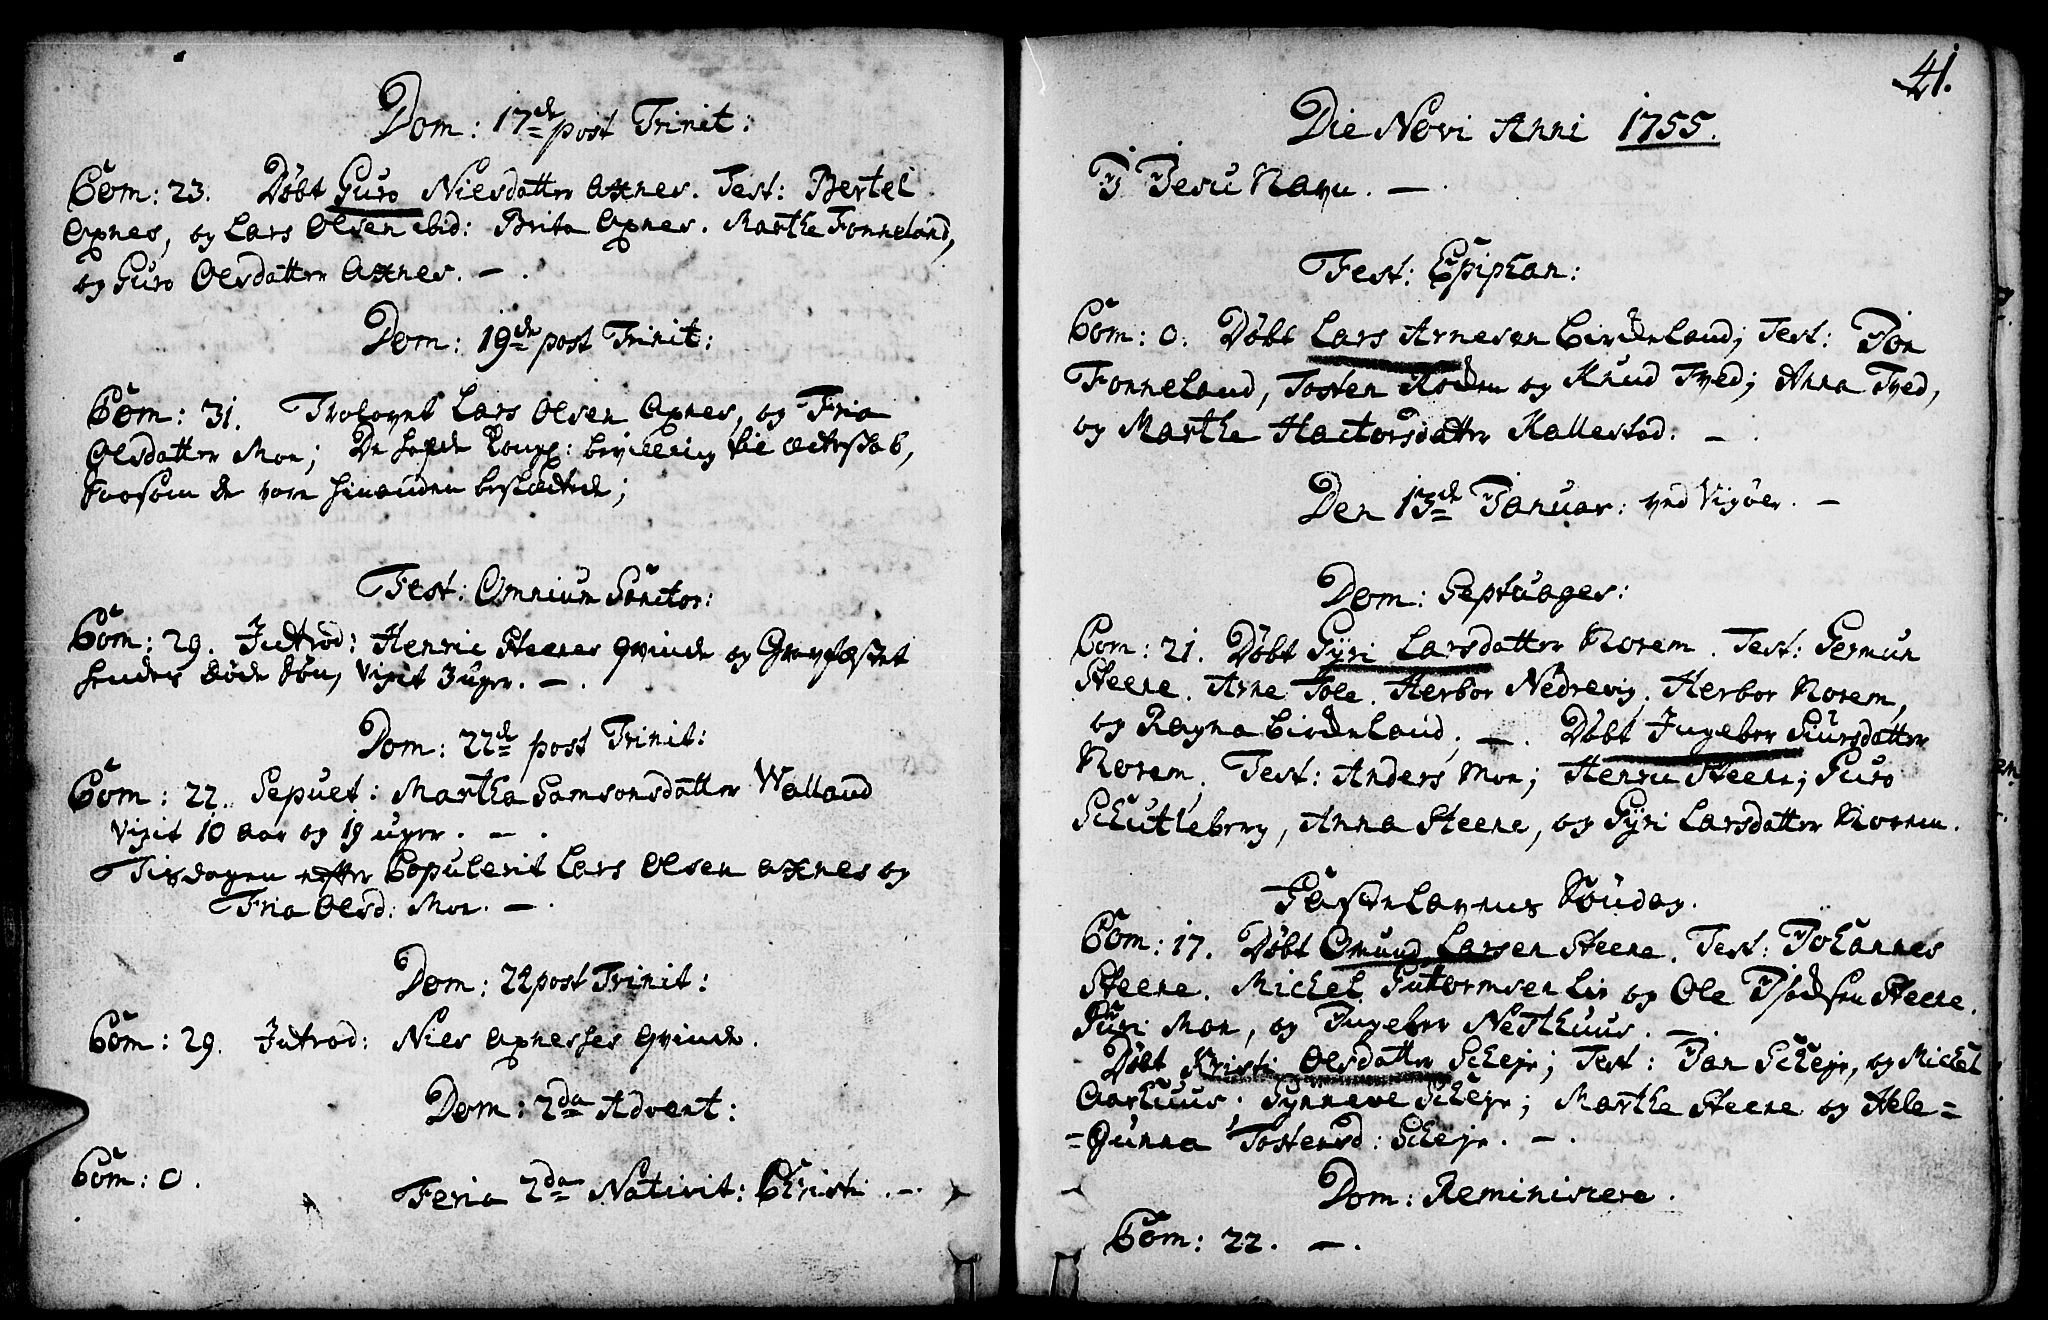 Dom: 17de post Trinit:
Com: 23. Døbt Guro Nielsdatter Axnes. Test: Bertel
Axnes, og Lars Olsen ibid: Brita Axnes. Marthe Fonneland,
og Guro Olsdatter Axnes. — .
Dom: 19de post Trinit:
Com: 31. Trolovet Lars Olsen Axnes, og Fria
Olsdatter Moe; De hafde Kongl: bevilling til ægteskab,
saasom de vare hinanden beslægtede;
Fest: Omnium Sanctor:
Com: 29. Introd: Henric Steenes qvinde og Gravfæstet
hendes døde Søn, vixit 3 uger. — .
Dom: 22de post Trinit:
Com: 22. Sepult: Martha Samsonsdatter Walland
vixit 10 aar og 19 uger. — .
Tisdagen efter Copulerit Lars Olsen Axnes og
Fria Olsd: Moe. — .
Dom: 22 post Trinit:
Com: 29. Introd: Niels Axnesses qvinde.
Dom: 2da Advent:
Com: 0.
Feria 2da Nativit: Christi. — .
41.
Die Novi Anni 1755.
I Jesu Navn. — .
Fest: Epiphan:
Com: 0. Døbt Lars Arnesen Birkenland; Test: Jon
Fonneland, Tosten og Knud Tved; Anna Tved,
og Marthe Hactorsdatter Kallestad. — .
Den 13de Januar: ved Vigøer. —
Dom: Septuages:
Com: 21. Døbt Gyri Larsdatter Norem. Test: Germun
Steene. Arne Tole. Herbor Nedrevig, Herbor Norem,
og Ragna Birkenland. — . Døbt Ingebor Siursdatter
Norem. Test: Anders Moe; Henric Steene; Guro
Schutleberg, Anna Steene, og Gyri Larsdatter Norem.
Fastelavns Søndag.
Com: 17. Døbt Omund Larsen Steene. Test: Johannes
Steene. Michel Gutormsen Lie og Ole Steene.
Guri Moe, og Ingebor Nesthuus. —
Døbt Kristi Olsdatter Scheje; Test: Jan Scheje, og Michel
Aarhuus; Synneve Scheje; Marthe Steene og Hele=
=Gunna Tostensd: Scheje. — .
Dom: Reminiscere.
Com: 22. — .